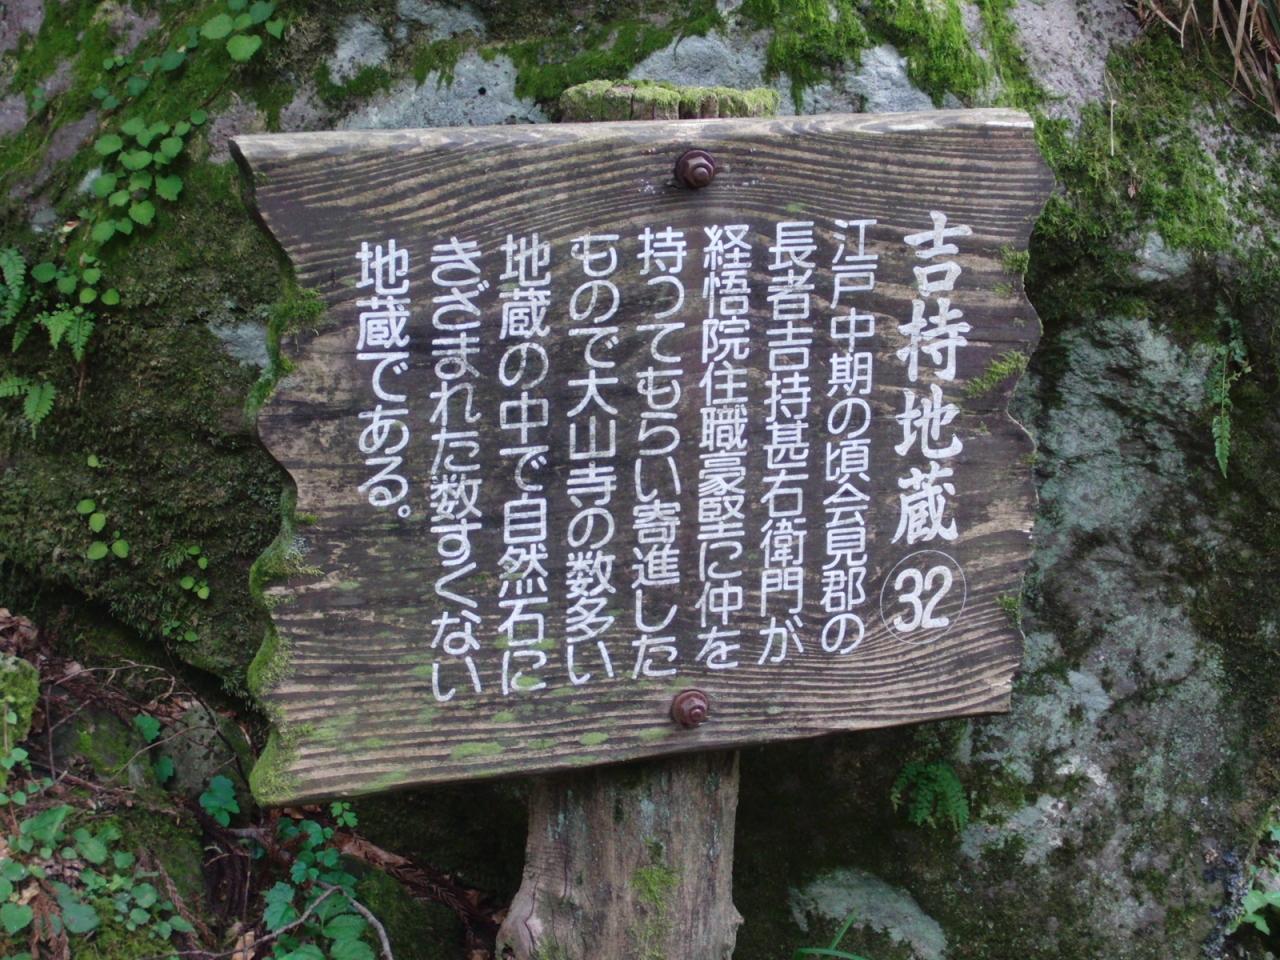 吉持地蔵 32
江戸中期の頃会見郡の
長者吉持甚右衛門が
経悟院住職豪堅に仲を
持ってもらい寄進した
もので大山寺の数多い
地蔵の中で自然石に
きざまれた数すくない
地蔵である。